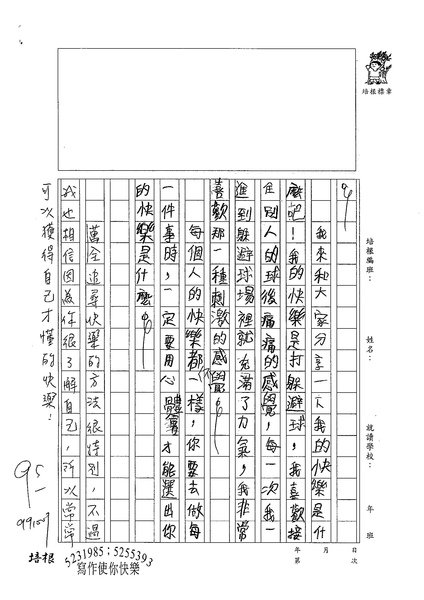 培根標章
培根編班：
姓名：
就讀學校：
年 班
我來和大家分享一下我的快樂是什
麼吧！我的快樂是打躲避球，我喜歡接
住別人的球後痛痛的感覺，每一次我一
進到躲避球場裡就充滿了力氣，我非常
喜歡那一種刺激的感覺。
每個人的快樂都不一樣，你要去做每
一件事時，一定要用心體會才能選出你
的快樂是什麼。
萬全追尋快樂的方法很特別，不過
我也相信因為你很了解自己，所以常常
可以獲得自己才懂的快樂！
95
991009
年 月 日
第 次
培根
5231985；5255393
寫作使你快樂